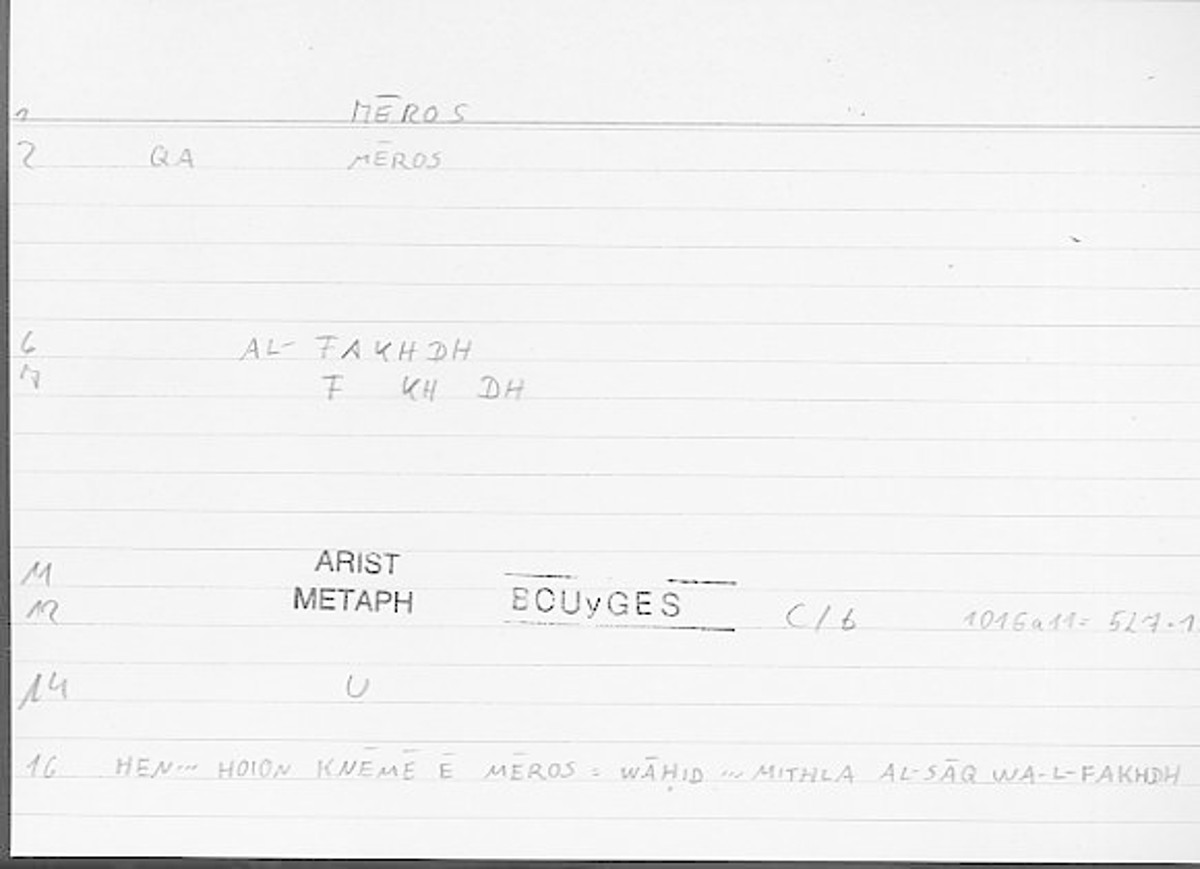 1 MĒROS
2 QA MĒROS
6 AL- FAKHDH
7 F KH DH
11 ARIST
12 METAPH BOUyGES C/b 1016a11= 527.1
14 U
16 HEN... HOION KNĒMĒ Ē MĒROS = WĀḤID ... MITHLA AL-SĀQ WA-L-FAKHDH